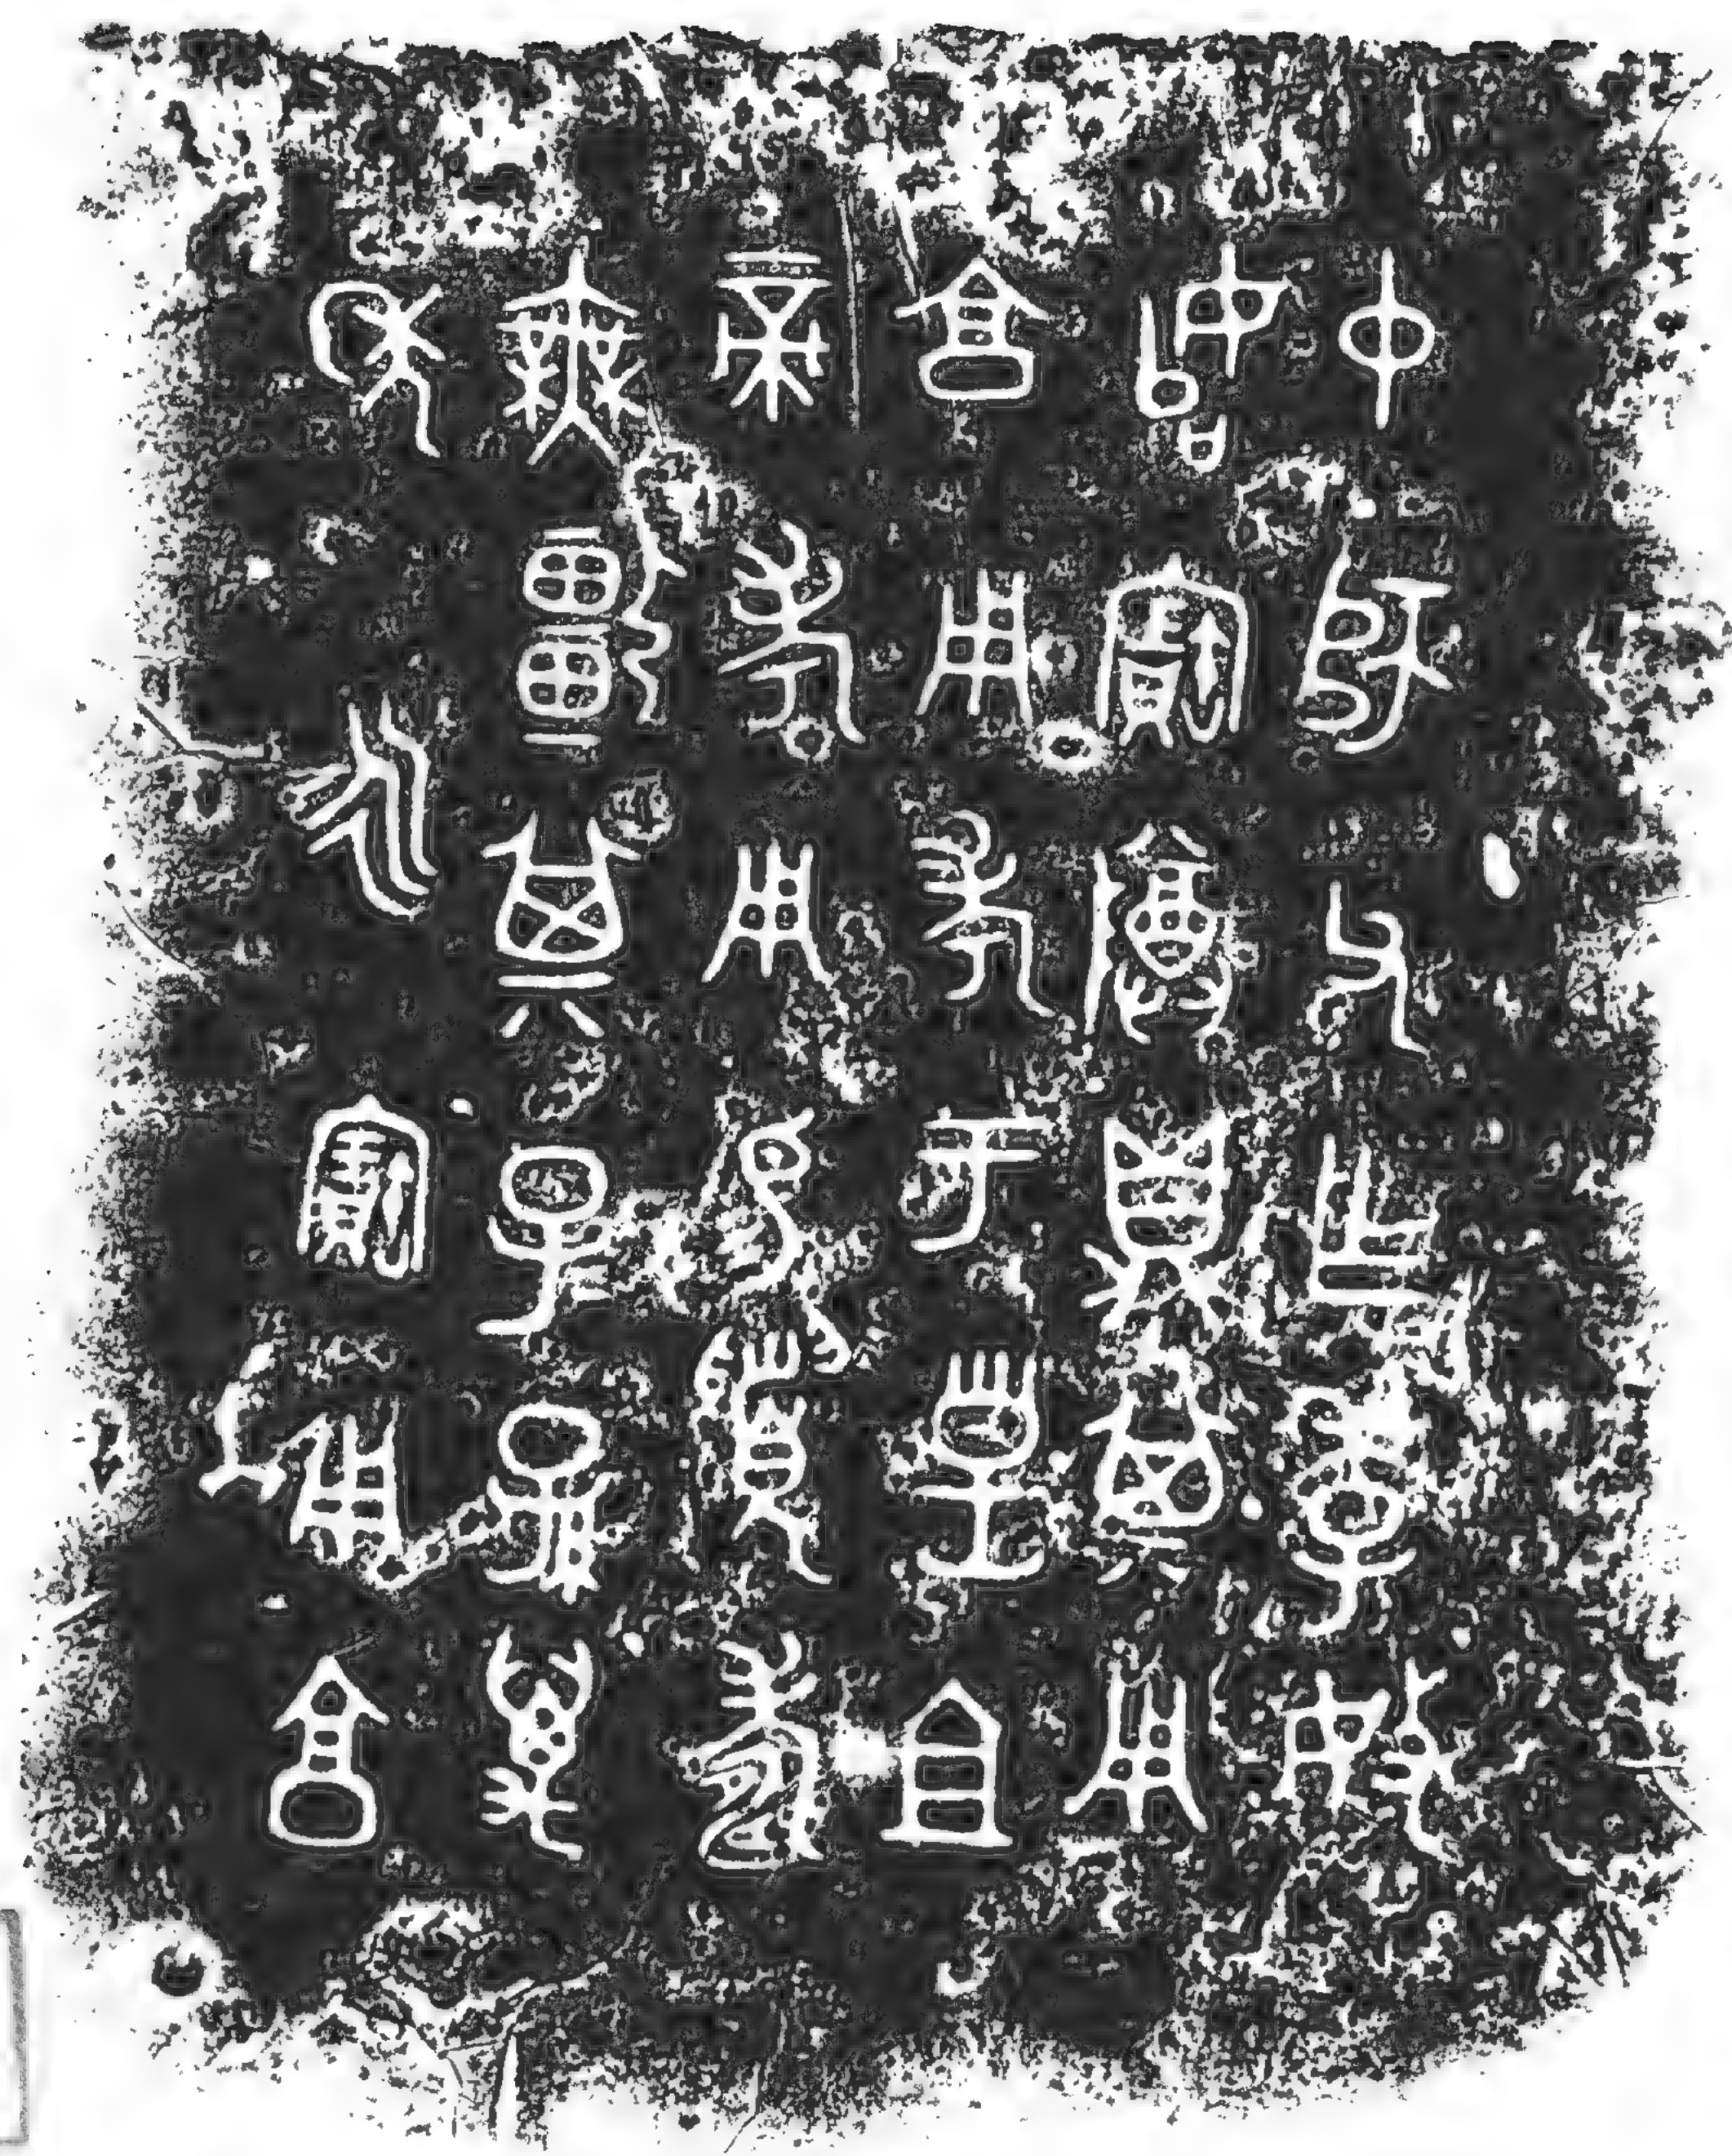 中師父乍季㚸
始寶尊鼎其用
享用考于皇且
帝考用易眉壽
無彊其子孫萬
年永寶用享